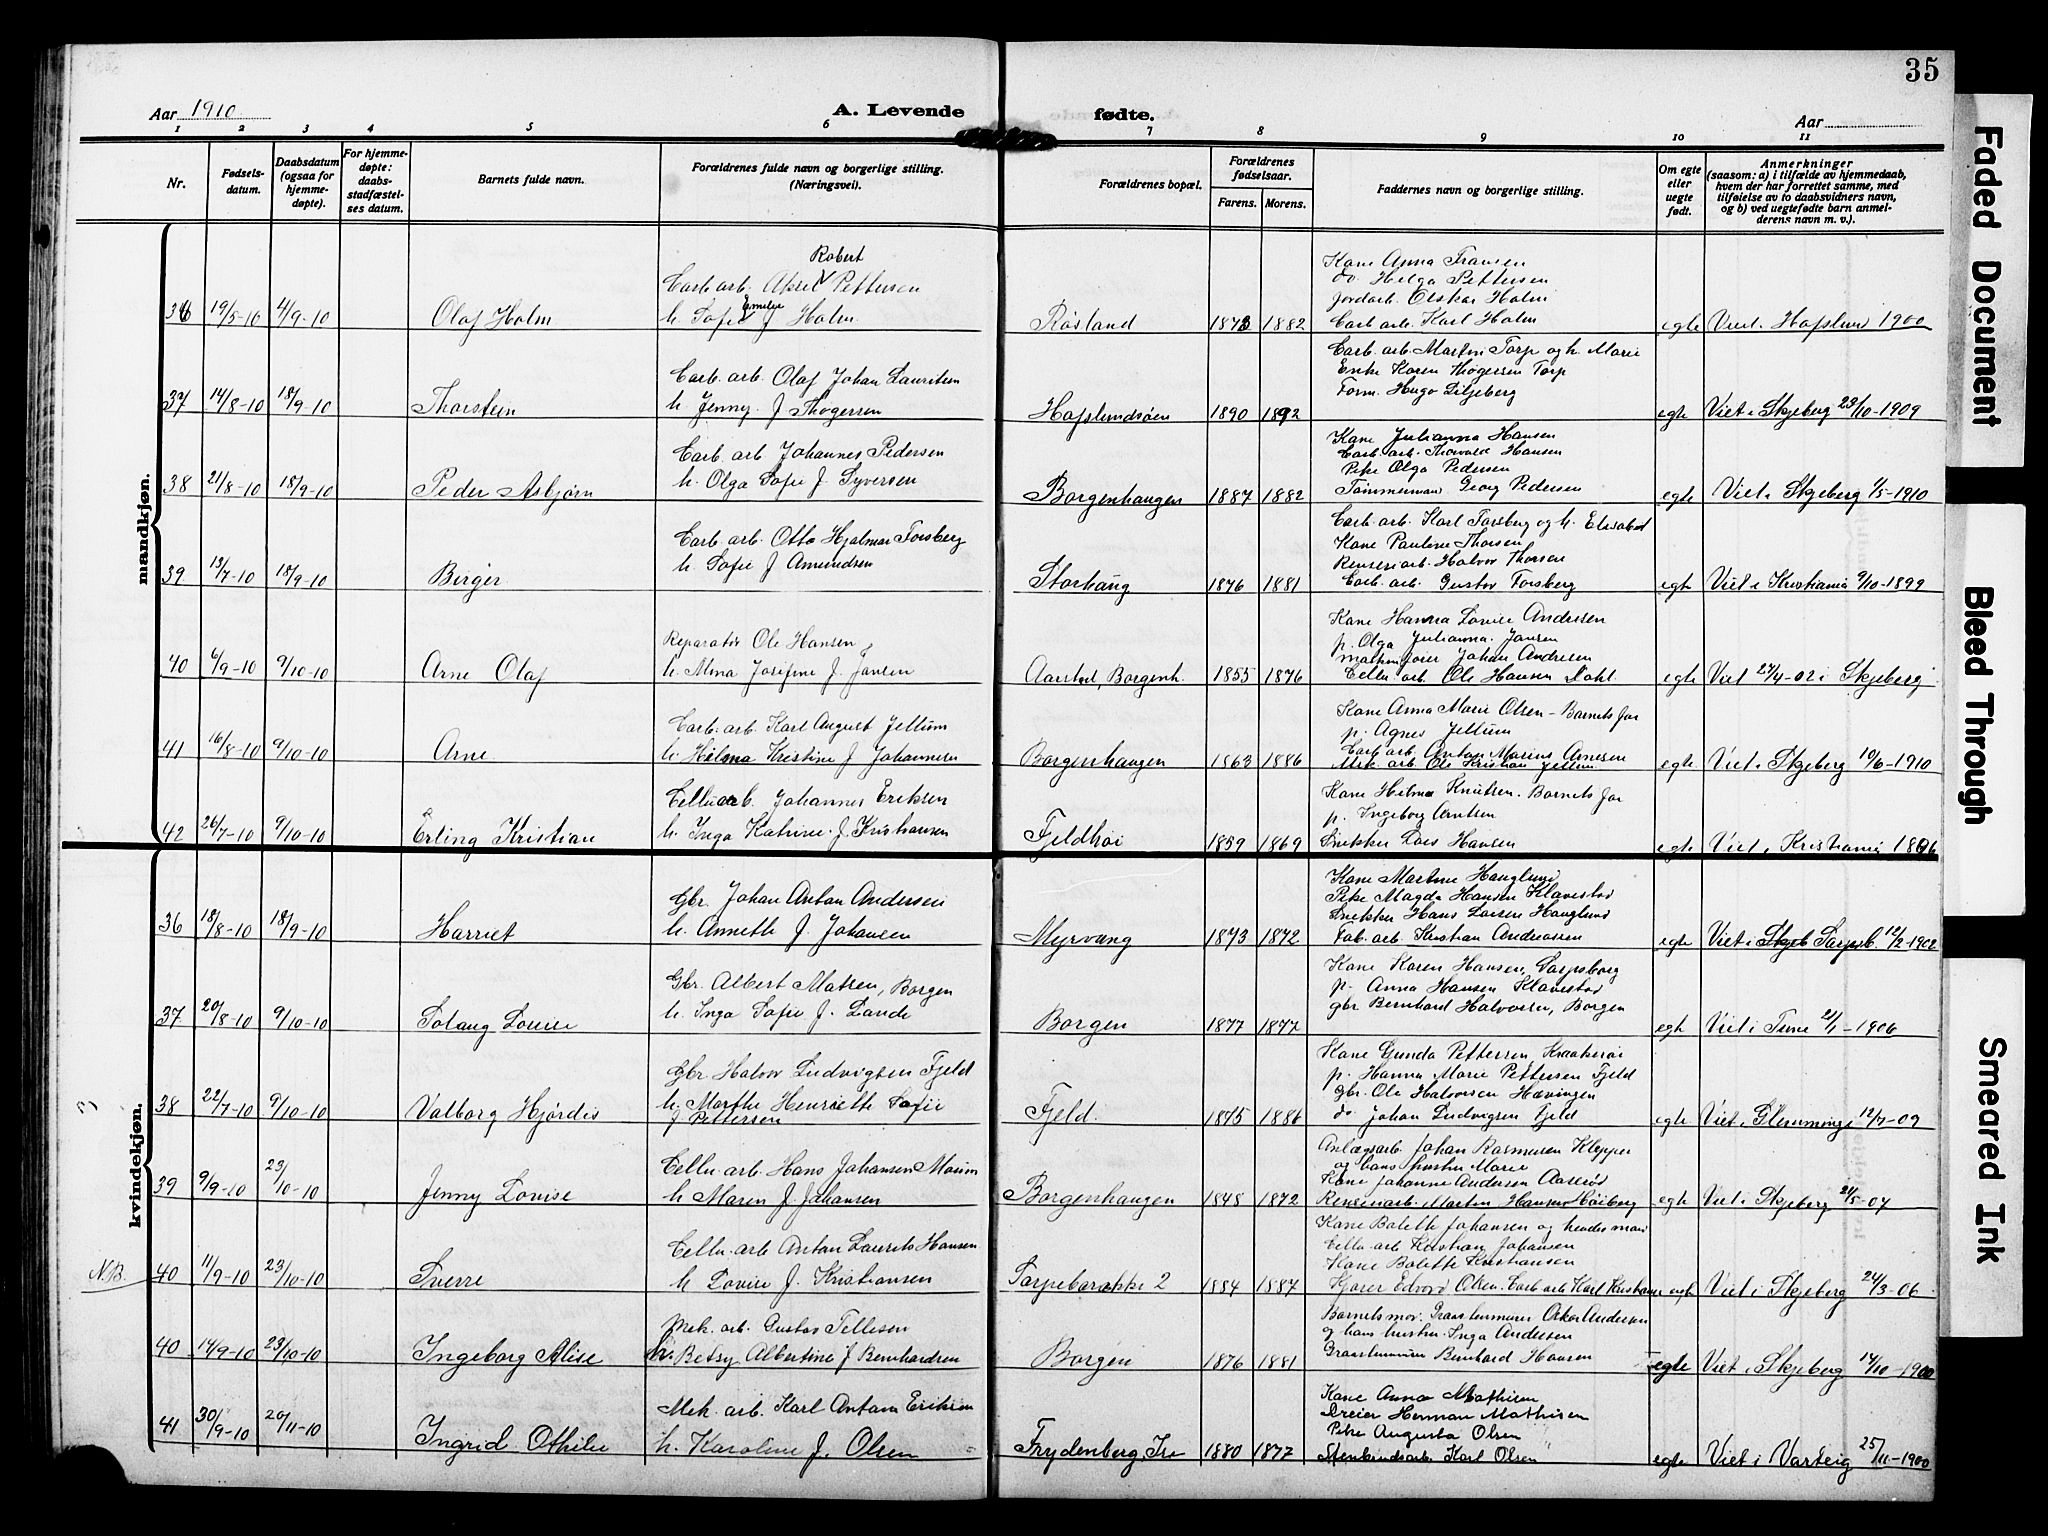 35
Aar 1910
A. Levende fødte.
Aar
1 2 3 4 5 6 7 8 9 10 11
Nr.
Fødsels-
datum.
Daabsdatum
(ogsaa for
hjemme-
døpte).
For hjemme-
døpte:
daabs-
stadfæstel-
ses datum.
Barnets fulde navn.
Forældrenes fulde navn og borgerlige stilling.
(Næringsvei).
Forældrenes bopæl.
Forældrenes
fødselsaar.
Farens. Morens.
Faddernes navn og borgerlige stilling.
Om egte
eller
uegte
født.
Anmerkninger
(saasom: a) i tilfælde av hjemmedaab,
hvem der har forrettet samme, med
tilføielse av to daabsvidners navn,
og b) ved uegtefødte barn anmel-
derens navn m. v.).
mandkjøn.
Robert
Carb. arb. Aksel Pettersen
Emilie
36 19/5-10 4/9-10 Olaf Holm h. Sofie f. Holm Røsland 1873 1882
Kone Anna Fransen
do Helga Pettersen
Jordarb. Oskar Holm
Carb. arb. Karl Holm
egte Viet i Hafslund 1900
Carb. arb. Olaf Johan Lauritsen
37 14/8-10 18/9-10 Thorstein h. Jenny f. Thøgersen Hafslundsøen 1890 1892
Carb. arb. Martin Torp og h. Marie
Enke Karen Thøgersen Torp
Form. Hugo Liljeberg
egte Viet i Skjeberg 23/10-1909
Carb. arb. Johannes Pedersen
38 21/8-10 18/9-10 Peder Asbjørn h. Olga Sofie f. Syversen Borgenhaugen 1887 1882
Kone Julianna Hansen
Carb. arb. Thorvald Hansen
Pike Olga Pedersen
Tømmermand Georg Pedersen
egte Viet i Skjeberg 1/5-1910
Carb. arb. Otto Hjalmar Forsberg
39 13/7-10 18/9-10 Birger h. Sofie f. Amundsen Storhaug 1876 1881
Carb. arb. Karl Forsberg og h. Elisabet
Kone Pauline Thorsen
Renseriarb. Halvor Thorsen
Carb. arb. Gustav Forsberg
egte Viet i Kristiania 9/10-1899
Reparatør Ole Hansen
40 6/9-10 9/10-10 Arne Olaf h. Mina Josefine f. Jansen Aarstad, Borgenh. 1855 1876
Kone Hanna Lovise Andersen
p. Olga Julianna Jansen
Maskinfører Johan Andresen
Cellu. arb. Ole Hansen Dahl
egte Viet 27/4-02 i Skjeberg
Carb. arb. Karl August Jellum
41 16/8-10 9/10-10 Arne h. Helma Kristine f. Johannesen Borgenhaugen 1863 1886
Kone Anna Marie Olsen - Barnets far
p. Agnes Jellum
Carb. arb. Anton Marius Arnesen
Mek. arb. Ole Kristian Jellum
egte Viet i Skjeberg 10/6-1910
Cellu arb. Johannes Eriksen
42 26/7-10 9/10-10 Erling Kristian h. Inga Katrine f. Kristiansen Fjeldhøi 1859 1869
Kone Helma Knutsen. Barnets far
p. Ingeborg Arntsen
Snekker Lars Hansen
egte Viet i Kristiania 1896
kvindekjøn.
Gbr. Johan Anton Andersen
36 18/8-10 18/9-10 Harriet h. Annette f. Johansen Myrvang 1873 1872
Kone Martine Hauglund
Pike Magda Hansen Klavestad
Snekker Hans Larsen Hauglund
Fab. arb. Kristian Andreassen
egte Viet i Skjeb Sarpsb. 12/2-1902
Gbr. Albert Matsen, Borgen
37 20/8-10 9/10-10 Solaug Lovise h. Inga Sofie f. Lande Borgen 1877 1877
Kone Karen Hansen, Sarpsborg
p. Anna Hansen Klavestad
gbr Bernhard Halvorsen, Borgen
egte Viet i Tune 21/1-1906
Gbr Halvor Ludvigsen Fjeld
38 22/7-10 9/10-10 Valborg Hjørdis h. Marthe Henriette Sofie
f Pettersen
Fjeld. 1875 1886
Kone Gunda Pettersen Kraakerøi
p. Hanna Marie Pettersen Fjeld
gbr. Ole Halvorsen Hævingen
do. Johan Ludvigsen Fjeld
egte Viet i Glemminge 12/7-09
Cellu. arb. Hans Johansen Moum
39 9/9-10 23/10-10 Jenny Lovise h. Maren f. Johansen Borgenhaugen 1848 1872
Anlægsarb. Johan Rasmussen Klepper
og hans hustru Marie
Kone Johanne Andersen Aaserød
Renseriarb. Martin Hansen Høiberg
egte Viet i Skjeberg 21/5-07
Cellu. arb Anton Laurits Hansen
N.B. 40 11/9-10 23/10-10 Sverre h. Lovise f. Kristiansen Torpebarakke 2 1884 1887
Kone Bolette Johansen og hendes man
Cellu. arb Kristian Johansen
Kone Bolette Kristiansen
Kjører Edvard Olsen. Carb. arb Karl Kristianse
egte Viet i Skjeberg 24/3-06
Mek. arb. Gustav Tellesen
40 14/9-10 23/10-10 Ingeborg Alise h. Betsy Albertine f Bernhardsen Borgen 1876 1881
Barnets mor. Graastenmurer Oskar Andersen
og hans hustru Inga Andersen
Graastenmurer Bernhard Hansen
egte Viet i Skjeberg 14/10-1900
Mek. arb. Karl Antom Eriksen
41 30/9-10 20/11-10 Ingrid Othilie h. Karoline f. Olsen Frydenberg, Ise 1880 1877
Kone Anna Mathisen
Dreier Herman Mathisen
Pike Augusta Olsen
Stenbrudsarb Karl Olsen
egte Viet i Varteig 25/11-1900
Faded Document
Bleed Through
Smeared Ink